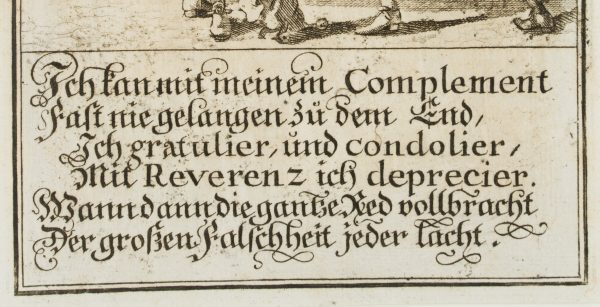 Ich kan mit meinem Complement
Fast nie gelangen zu dem End,
Ich gratulier, und condolier,
Mit Reverenz ich deprecier.
Wann dann die gantze Red vollbracht
Der großen Falschheit jeder lacht.